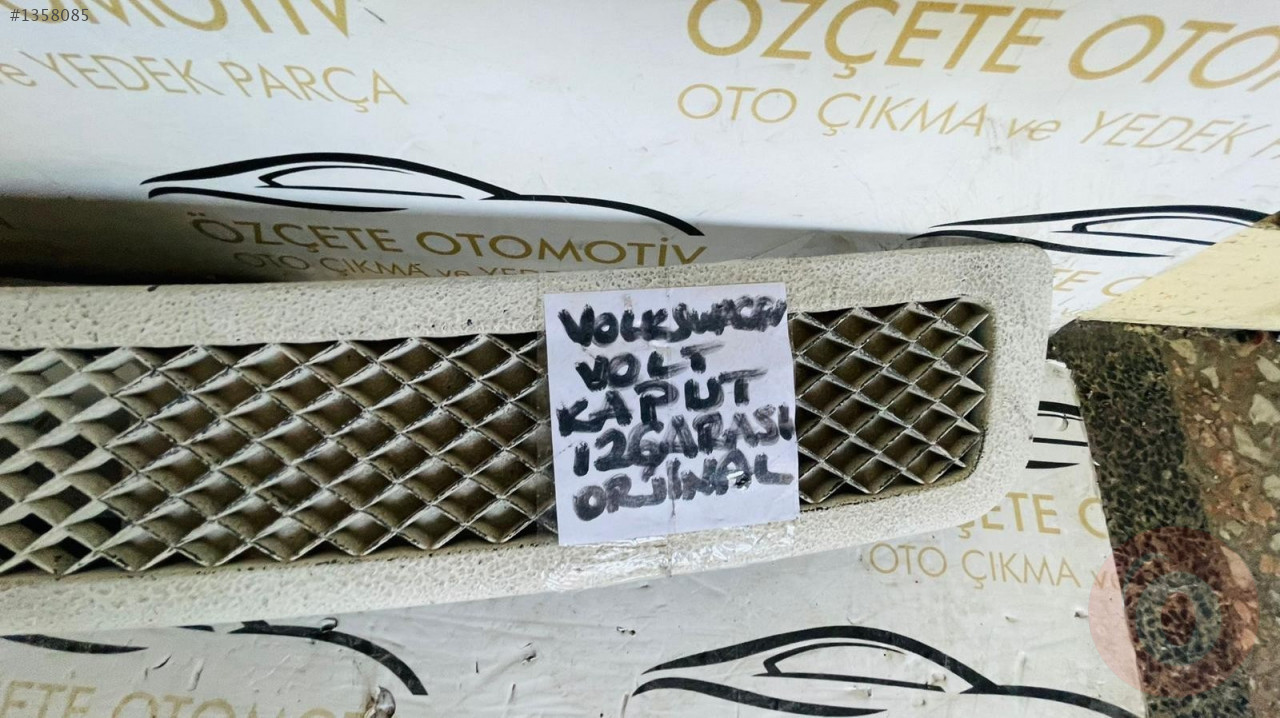 #1358085
OMOTİV
ve YEDEK PARÇA
ÖZÇETE OTO
OTO ÇIKMA ve YEDEK
ÖZÇETE OTOMOTİV
OTO ÇIKMA ve
VOLKSWAGEN
VOLT
KAPUT
IZGARASI
ORJİNAL
ÇETE
OTO ÇIKMA ve
ETE OTOMOT